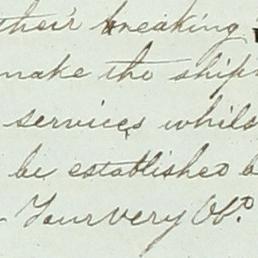 their breaking
make the ship
services whils
be established b
Your very Obt